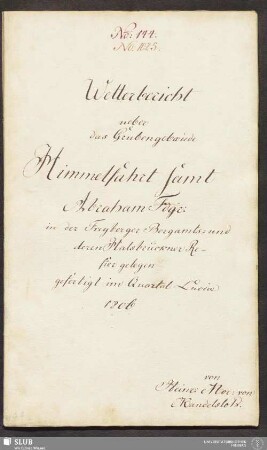 No: 144.
Wetterbericht
ueber
das Grubengebäude
Himmelfahrt samt
Abraham Fdgr:
in der Freyberger Bergamts- und
deren Halsbrückner Re-
fier gelegen
gefertigt im Quartal Luciä
1806
von
von
Mandelsloh.
SLUB